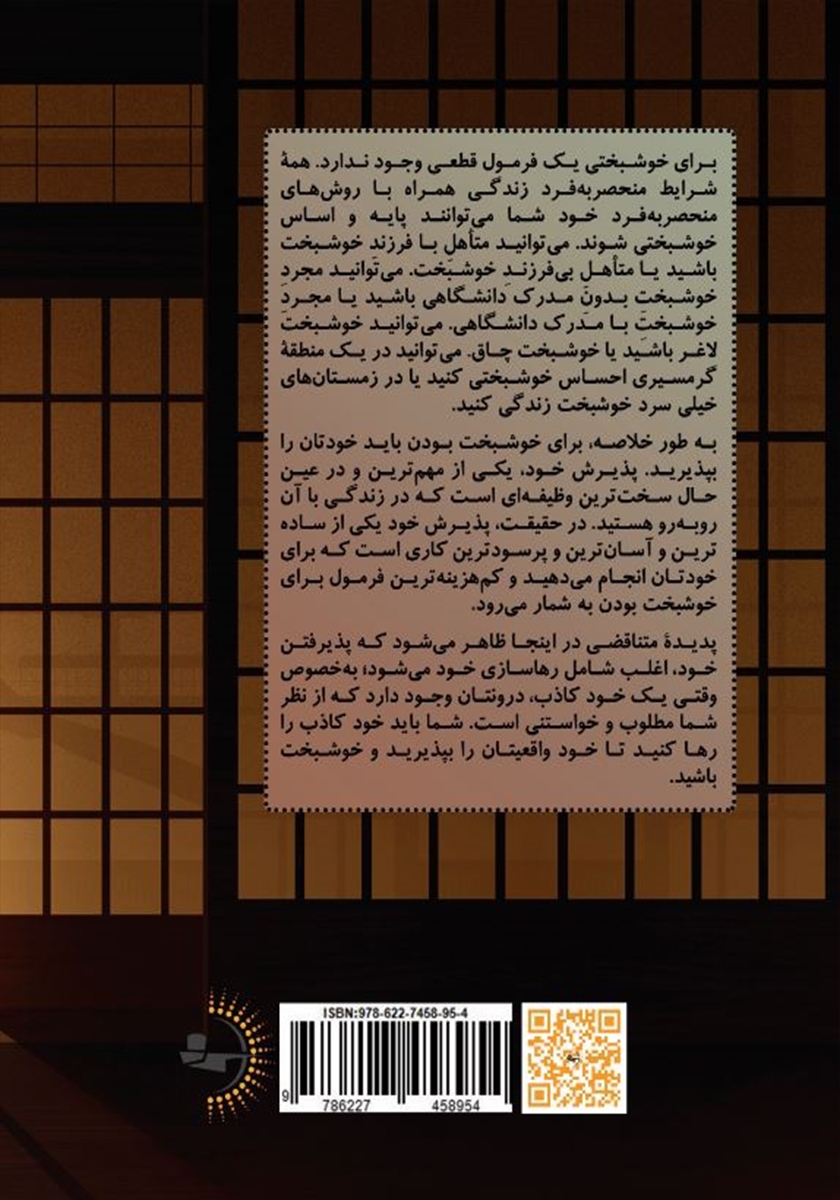 برای خوشبختی یک فرمول قطعی وجود ندارد. همۀ
شرایط منحصربه‌فرد زندگی همراه با روش‌های
منحصربه‌فرد خود شما می‌توانند پایه و اساس
خوشبختی شوند. می‌توانید متأهلِ با فرزندِ خوشبخت
باشید یا متأهلِ بی‌فرزندِ خوشبخت. می‌توانید مجردِ
خوشبختِ بدونِ مدرک دانشگاهی باشید یا مجردِ
خوشبختِ با مدرک دانشگاهی. می‌توانید خوشبختِ
لاغر باشید یا خوشبخت چاق. می‌توانید در یک منطقۀ
گرمسیری احساس خوشبختی کنید یا در زمستان‌های
خیلی سرد خوشبخت زندگی کنید.
به طور خلاصه، برای خوشبخت بودن باید خودتان را
بپذیرید. پذیرش خود، یکی از مهم‌ترین و در عین
حال سخت‌ترین وظیفه‌ای است که در زندگی با آن
روبه‌رو هستید. در حقیقت، پذیرش خود یکی از ساده
ترین و آسان‌ترین و پرسودترین کاری است که برای
خودتان انجام می‌دهید و کم‌هزینه‌ترین فرمول برای
خوشبخت بودن به شمار می‌رود.
پدیدۀ متناقضی در اینجا ظاهر می‌شود که پذیرفتن
خود، اغلب شامل رهاسازی خود می‌شود؛ به‌خصوص
وقتی یک خود کاذب، درونتان وجود دارد که از نظر
شما مطلوب و خواستنی است. شما باید خود کاذب را
رها کنید تا خود واقعیتان را بپذیرید و خوشبخت
باشید.
ISBN:978-622-7458-95-4
9 786227 458954